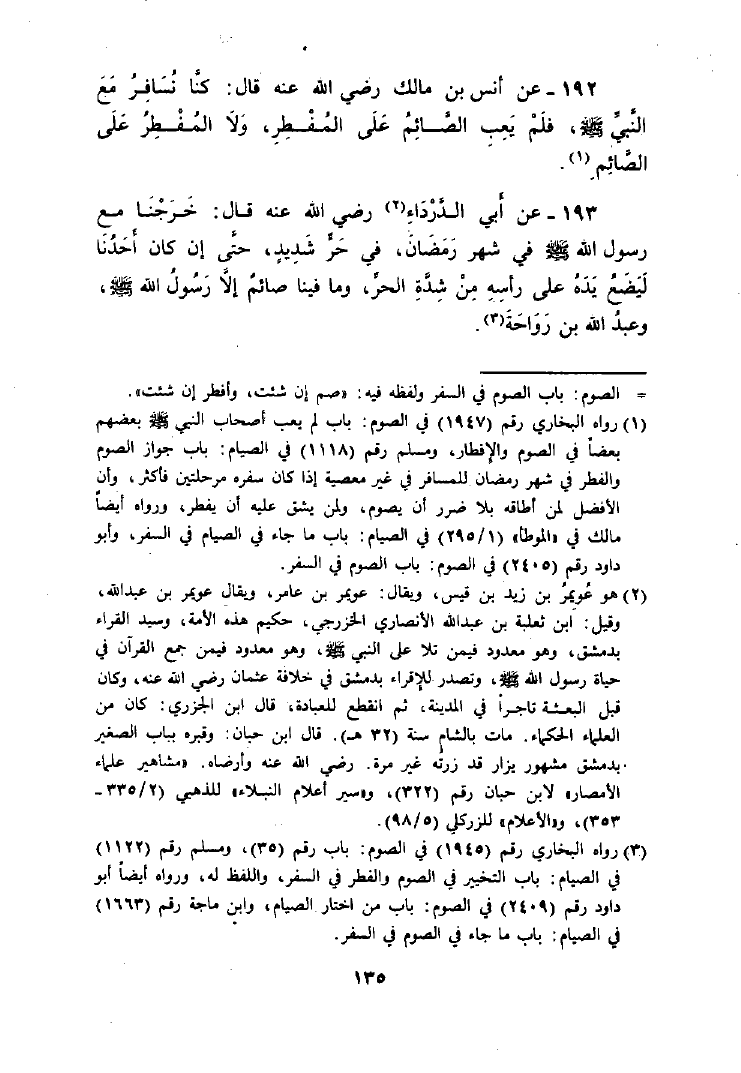 ١٩٢ - عن أنس بن مالك رضي الله عنه قال: كنَّا نُسَافِرُ مَعَ
النَّبيِّ ﷺ، فلَمْ يَعِبِ الصَّائِمُ عَلَى المُفْطِرِ، وَلَا المُفْطِرُ عَلَى
الصَّائِمِ(١).
١٩٣ - عن أَبي الدَّرْدَاءِ(٢) رضي الله عنه قال: خَرَجْنَا مع
رسول الله ﷺ في شهر رَمَضَانَ، في حَرٍّ شَدِيدٍ، حتَّى إن كان أَحَدُنَا
لَيَضَعُ يَدَهُ على رأسِهِ مِنْ شِدَّةِ الحرِّ، وما فينا صائمٌ إلَّا رَسُولُ الله ﷺ،
وعبدُ الله بن رَوَاحَةَ(٣).
= الصوم: باب الصوم في السفر ولفظه فيه: «صم إن شئت، وأفطر إن شئت».
(١) رواه البخاري رقم (١٩٤٧) في الصوم: باب لم يعب أصحاب النبي ﷺ بعضهم
بعضاً في الصوم والإفطار، ومسلم رقم (١١١٨) في الصيام: باب جواز الصوم
والفطر في شهر رمضان للمسافر في غير معصية إذا كان سفره مرحلتين فأكثر، وأن
الأفضل لمن أطاقه بلا ضرر أن يصوم، ولمن يشق عليه أن يفطر، ورواه أيضاً
مالك في «الموطأ» (٢٩٥/١) في الصيام: باب ما جاء في الصيام في السفر، وأبو
داود رقم (٢٤٠٥) في الصوم: باب الصوم في السفر.
(٢) هو عُويمرُ بن زيد بن قيس، ويقال: عويمر بن عامر، ويقال عويمر بن عبدالله،
وقيل: ابن ثعلبة بن عبدالله الأنصاري الخزرجي، حكيم هذه الأمة، وسيد القراء
بدمشق، وهو معدود فيمن تلا على النبي ﷺ، وهو معدود فيمن جمع القرآن في
حياة رسول الله ﷺ، وتصدر للإقراء بدمشق في خلافة عثمان رضي الله عنه، وكان
قبل البعثة تاجراً في المدينة، ثم انقطع للعبادة، قال ابن الجزري: كان من
العلماء الحكماء. مات بالشام سنة (٣٢ هـ). قال ابن حبان: وقبره بباب الصغير
بدمشق مشهور يزار قد زرته غير مرة. رضي الله عنه وأرضاه. «مشاهير علماء
الأمصار» لابن حبان رقم (٣٢٢)، و«سير أعلام النبلاء» للذهبي (٣٣٥/٢ -
٣٥٣)، و«الأعلام» للزركلي (٩٨/٥).
(٣) رواه البخاري رقم (١٩٤٥) في الصوم: باب رقم (٣٥)، ومسلم رقم (١١٢٢)
في الصيام: باب التخيير في الصوم والفطر في السفر، واللفظ له، ورواه أيضاً أبو
داود رقم (٢٤٠٩) في الصوم: باب من اختار الصيام، وابن ماجة رقم (١٦٦٣)
في الصيام: باب ما جاء في الصوم في السفر.
١٣٥